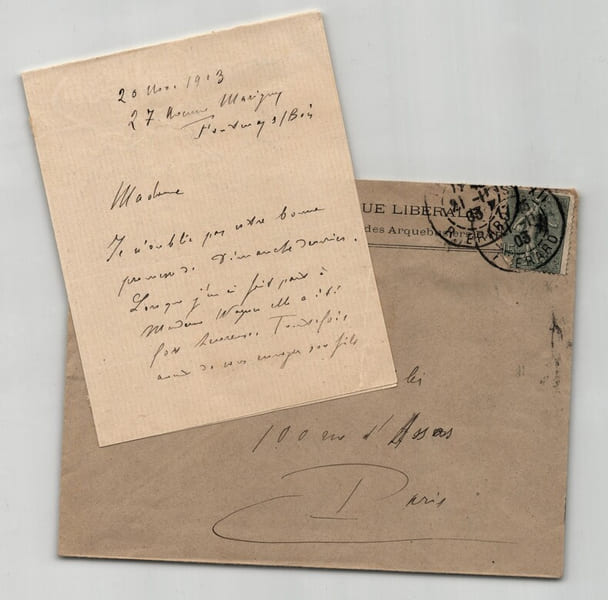 20 Nov. 1903
27 Avenue Marigny
Fontenay s/Bois
Madame
Je n'oublie pas votre bonne
promesse de Dimanche dernier.
Lorsque j'en ai fait part à
Madame elle a été
fort heureuse. Toutefois
avant de vous envoyer son fils
UE LIBERAL
des Arquebusiers
R. ERARD
03
100 rue d'Assas
Paris